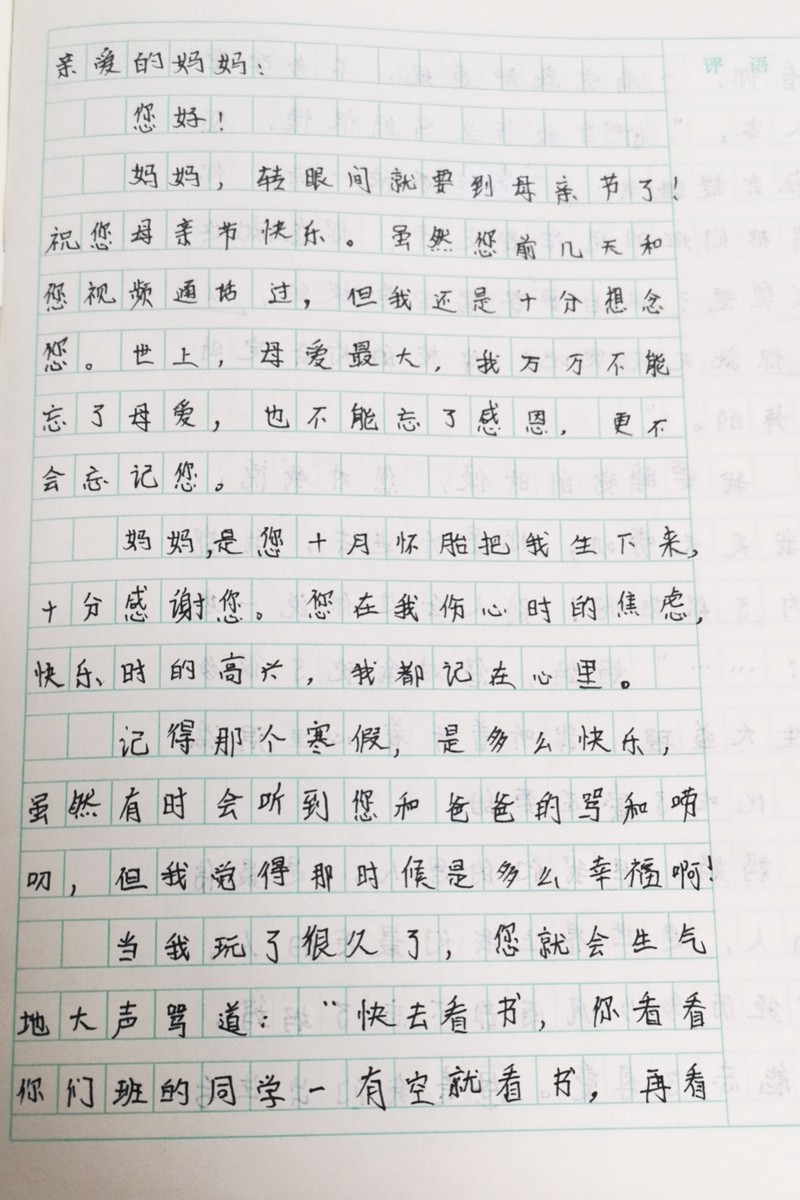 亲爱的妈妈：
评语
您好！
妈妈，转眼间就要到母亲节了！
祝您母亲节快乐。虽然您前几天和
您视频通话过，但我还是十分想念
您。世上，母爱最大，我万万不能
忘了母爱，也不能忘了感恩，更不
会忘记您。
妈妈，是您十月怀胎把我生下来，
十分感谢您。您在我伤心时的焦虑，
快乐时的高兴，我都记在心里。
记得那个寒假，是多么快乐，
虽然有时会听到您和爸爸的骂和唠
叨，但我觉得那时候是多么幸福啊！
当我玩了很久了，您就会生气
地大声骂道：“快去看书，你看看
你们班的同学一有空就看书，再看